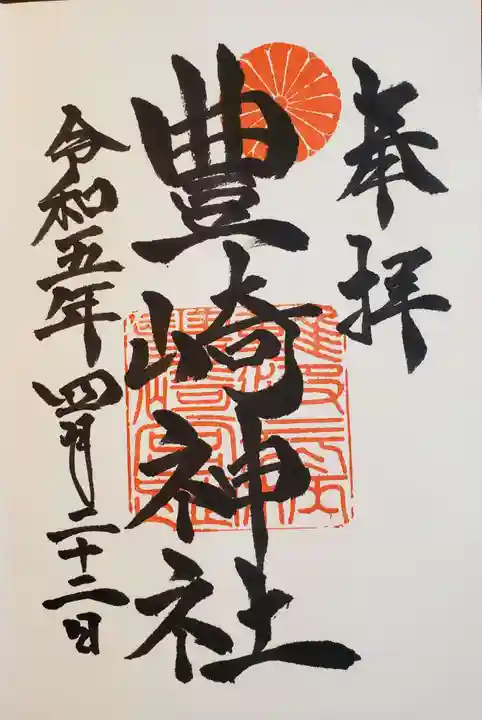 奉拝
豊崎神社
令和五年四月二十二日